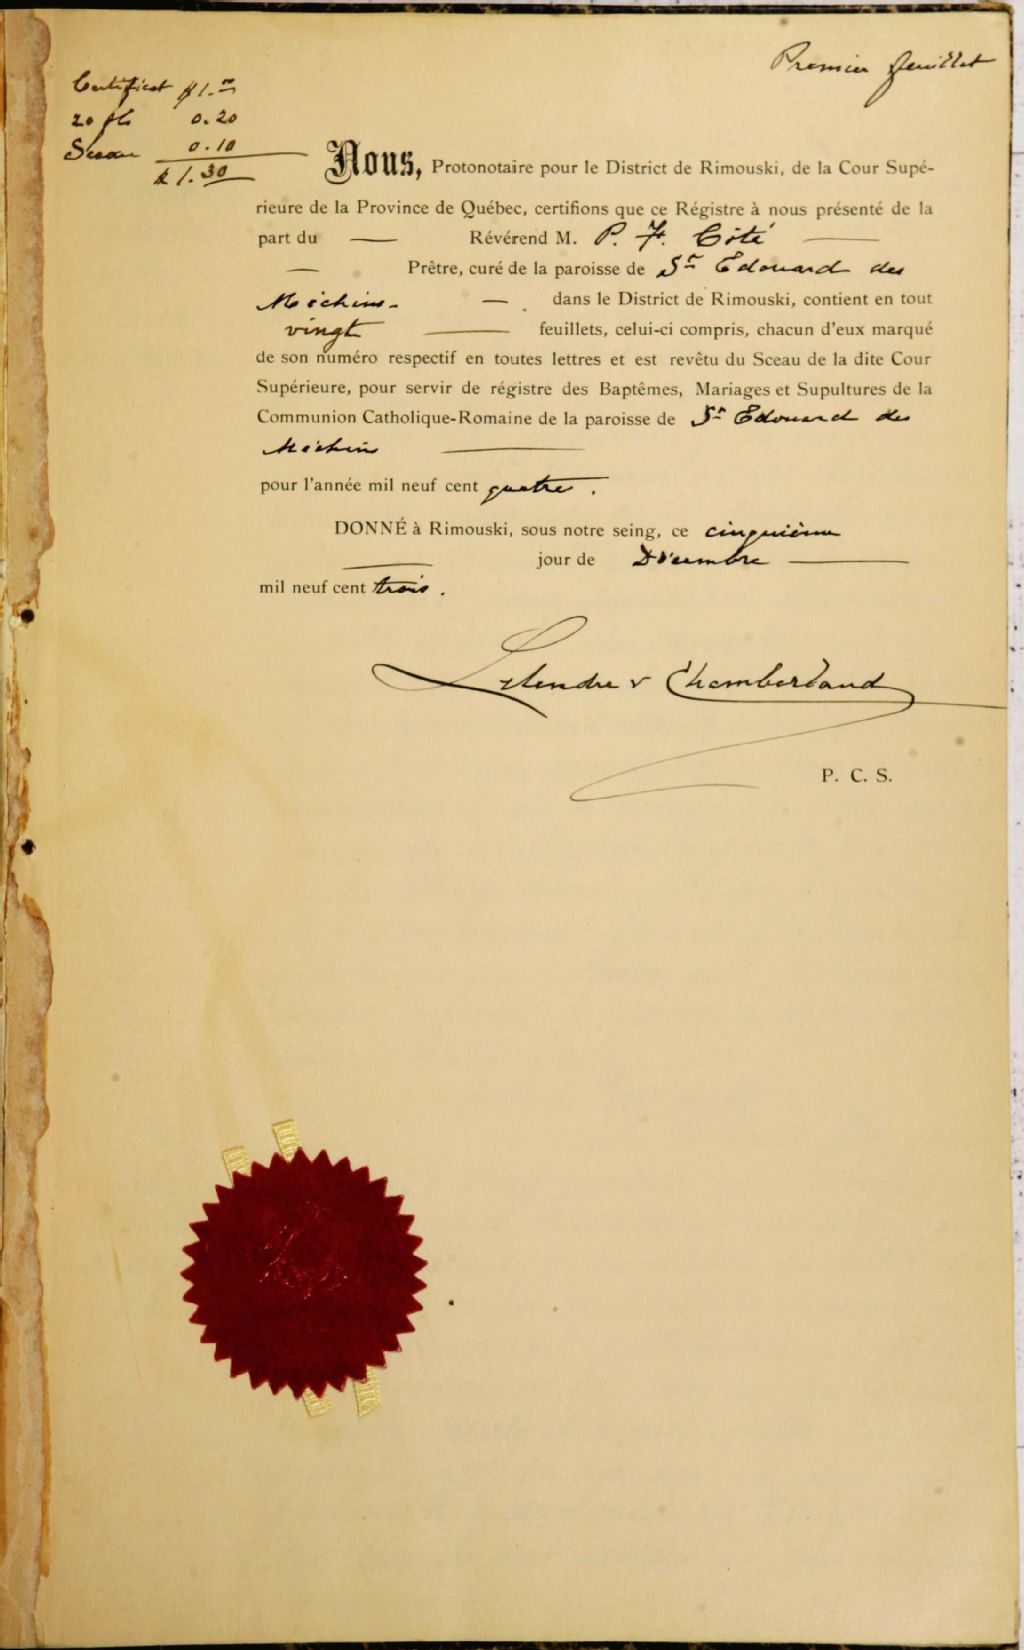 Premier feuillet
Certificat $1.00
20 fts 0.20
Sceau 0.10
$1.30
Nous, Protonotaire pour le District de Rimouski, de la Cour Supé-
rieure de la Province de Québec, certifions que ce Régistre à nous présenté de la
part du — Révérend M. P. F. Côté —
— Prêtre, curé de la paroisse de St Edouard des
Méchins — dans le District de Rimouski, contient en tout
vingt — feuillets, celui-ci compris, chacun d'eux marqué
de son numéro respectif en toutes lettres et est revêtu du Sceau de la dite Cour
Supérieure, pour servir de régistre des Baptêmes, Mariages et Supultures de la
Communion Catholique-Romaine de la paroisse de St Edouard des
Méchins —
pour l'année mil neuf cent quatre.
DONNÉ à Rimouski, sous notre seing, ce cinquième
— jour de Décembre —
mil neuf cent trois.
Letendre & Chamberland
P. C. S.